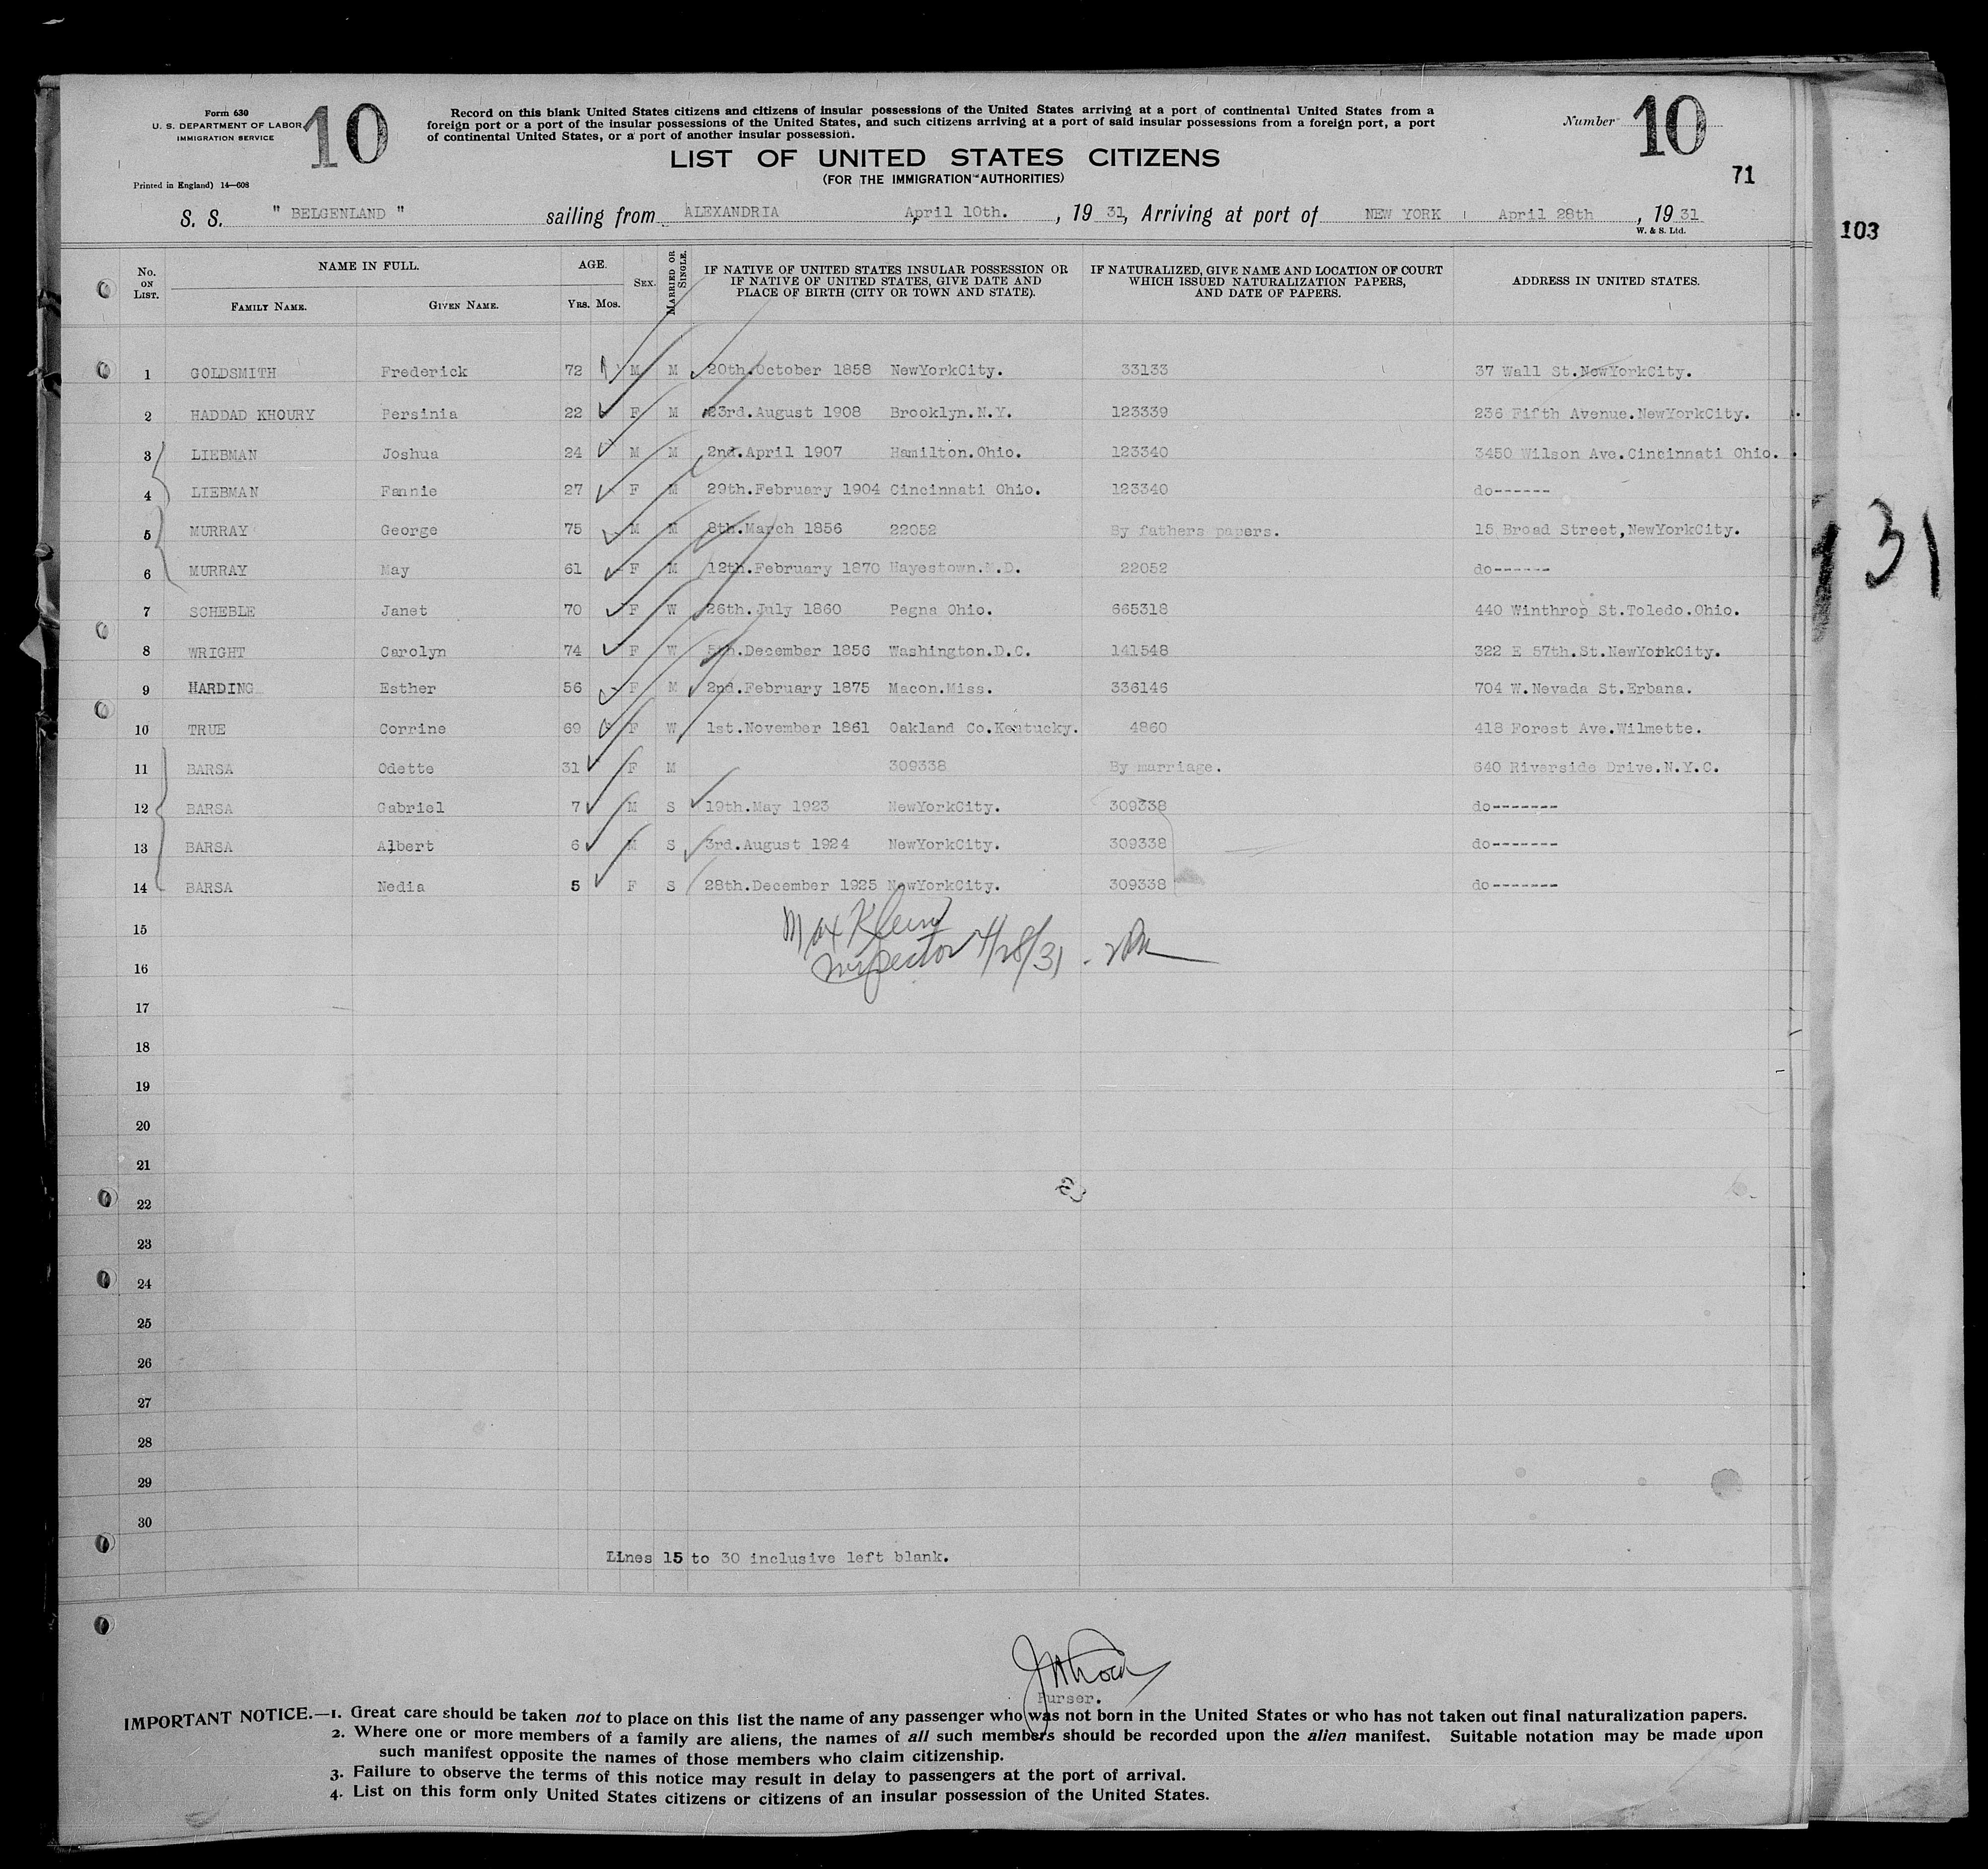 Form 630
U. S. DEPARTMENT OF LABOR
IMMIGRATION SERVICE
10
Record on this blank United States citizens and citizens of insular possessions of the United States arriving at a port of continental United States from a
foreign port or a port of the insular possessions of the United States, and such citizens arriving at a port of said insular possessions from a foreign port, a port
of continental United States, or a port of another insular possession.
Number 10
LIST OF UNITED STATES CITIZENS
(FOR THE IMMIGRATION AUTHORITIES)
71
Printed in England) 14—608
S. S. " BELGENLAND " sailing from ALEXANDRIA, April 10th. , 19 31, Arriving at port of NEW YORK , April 28th , 19 31
W. & S. Ltd.
103
No. ON LIST. NAME IN FULL. FAMILY NAME. GIVEN NAME. AGE. YRS. MOS. SEX. MARRIED OR SINGLE. IF NATIVE OF UNITED STATES INSULAR POSSESSION OR IF NATIVE OF UNITED STATES, GIVE DATE AND PLACE OF BIRTH (CITY OR TOWN AND STATE). IF NATURALIZED, GIVE NAME AND LOCATION OF COURT WHICH ISSUED NATURALIZATION PAPERS, AND DATE OF PAPERS. ADDRESS IN UNITED STATES.
1 GOLDSMITH Frederick 72 M M 20th.October 1858 NewYorkCity. 33133 37 Wall St.NewYorkCity.
2 HADDAD KHOURY Persinia 22 F M 23rd.August 1908 Brooklyn.N.Y. 123339 236 Fifth Avenue.NewYorkCity.
3 LIEBMAN Joshua 24 M M 2nd.April 1907 Hamilton.Ohio. 123340 3450 Wilson Ave.Cincinnati Ohio.
4 LIEBMAN Fannie 27 F M 29th.February 1904 Cincinnati Ohio. 123340 do------
5 MURRAY George 75 M M 8th.March 1856 22052 By fathers papers. 15 Broad Street,NewYorkCity.
6 MURRAY May 61 F M 12th.February 1870 Hayestown.M.D. 22052 do------
7 SCHEBLE Janet 70 F W 26th.July 1860 Pegna Ohio. 665318 440 Winthrop St.Toledo.Ohio.
8 WRIGHT Carolyn 74 F W 5th.December 1856 Washington.D.C. 141548 322 E 57th.St.NewYorkCity.
9 HARDING Esther 56 F M 2nd.February 1875 Macon.Miss. 336146 704 W.Nevada St.Erbana.
10 TRUE Corrine 69 F W 1st.November 1861 Oakland Co.Kentucky. 4860 418 Forest Ave.Wilmette.
11 BARSA Odette 31 F M 309338 By marriage. 640 Riverside Drive.N.Y.C.
12 BARSA Gabriel 7 M S 19th.May 1923 NewYorkCity. 309338 do-------
13 BARSA Albert 6 M S 3rd.August 1924 NewYorkCity. 309338 do-------
14 BARSA Nedia 5 F S 28th.December 1925 NewYorkCity. 309338 do-------
15
Max Klein
Inspector 4/28/31
16
17
18
19
20
21
22
23
24
25
26
27
28
29
30
31
Lines 15 to 30 inclusive left blank.
Purser.
IMPORTANT NOTICE.—1. Great care should be taken not to place on this list the name of any passenger who was not born in the United States or who has not taken out final naturalization papers.
2. Where one or more members of a family are aliens, the names of all such members should be recorded upon the alien manifest. Suitable notation may be made upon
such manifest opposite the names of those members who claim citizenship.
3. Failure to observe the terms of this notice may result in delay to passengers at the port of arrival.
4. List on this form only United States citizens or citizens of an insular possession of the United States.